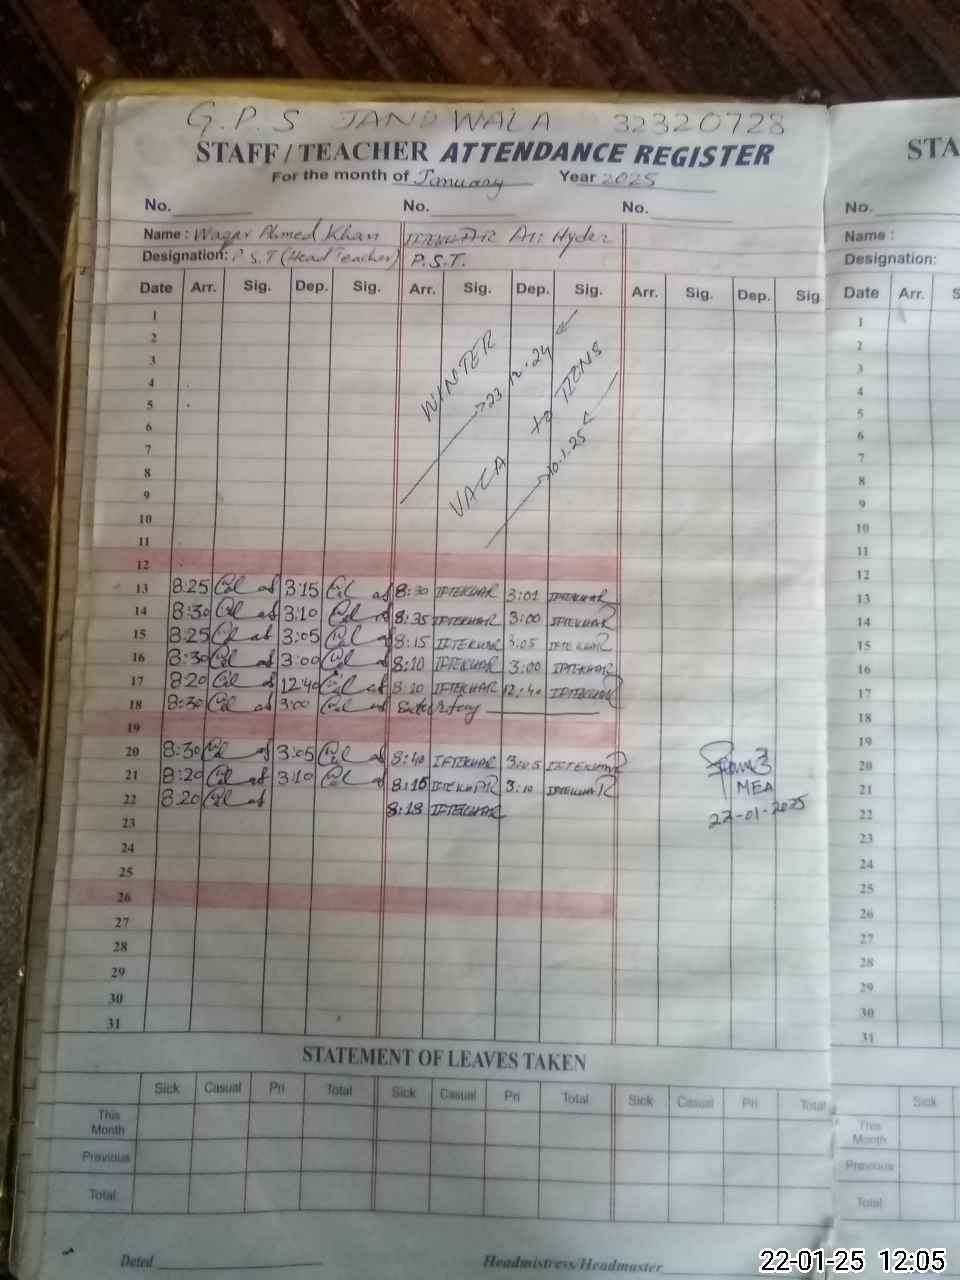 G.P.S JAND WALA 32320728
STAFF/TEACHER ATTENDANCE REGISTER
For the month of January Year 2025
No. No. No.
Name: Waqar Ahmed Khan IFTEKHAR Ali Hyder
Designation: P.S.T (Head Teacher) P.S.T.
Date Arr. Sig. Dep. Sig. Arr. Sig. Dep. Sig. Arr. Sig. Dep. Sig.
1
2
3
4
5
6
7
8
9
10
11
WINTER
23.12.24
to
VACA TIONS
10.1.25
12
13 8:25 3:15 8:30 IFTEKHAR 3:01 IFTEKHAR
14 8:30 3:10 8:35 IFTEKHAR 3:00 IFTEKHAR
15 8:25 3:05 8:15 IFTEKHAR 3:05 IFTEKHAR
16 8:30 3:00 8:20 IFTEKHAR 3:00 IFTEKHAR
17 8:20 12:40 8:20 IFTEKHAR 12:40 IFTEKHAR
18 8:30 3:00 Saturday
19
20 8:30 3:05 8:40 IFTEKHAR 3:05 IFTEKHAR
21 8:20 3:10 8:15 IFTEKHAR 3:10 IFTEKHAR
22 8:20 8:18 IFTEKHAR
MEA
22-01-2025
23
24
25
26
27
28
29
30
31
STATEMENT OF LEAVES TAKEN
Sick Casual Pri Total Sick Casual Pri Total Sick Casual Pri Total
This Month
Previous
Total
Dated Headmistress/Headmaster
STA
No.
Name :
Designation:
Date Arr. S
1
2
3
4
5
6
7
8
9
10
11
12
13
14
15
16
17
18
19
20
21
22
23
24
25
26
27
28
29
30
31
Sick
This Month
Previous
Total
22-01-25 12:05